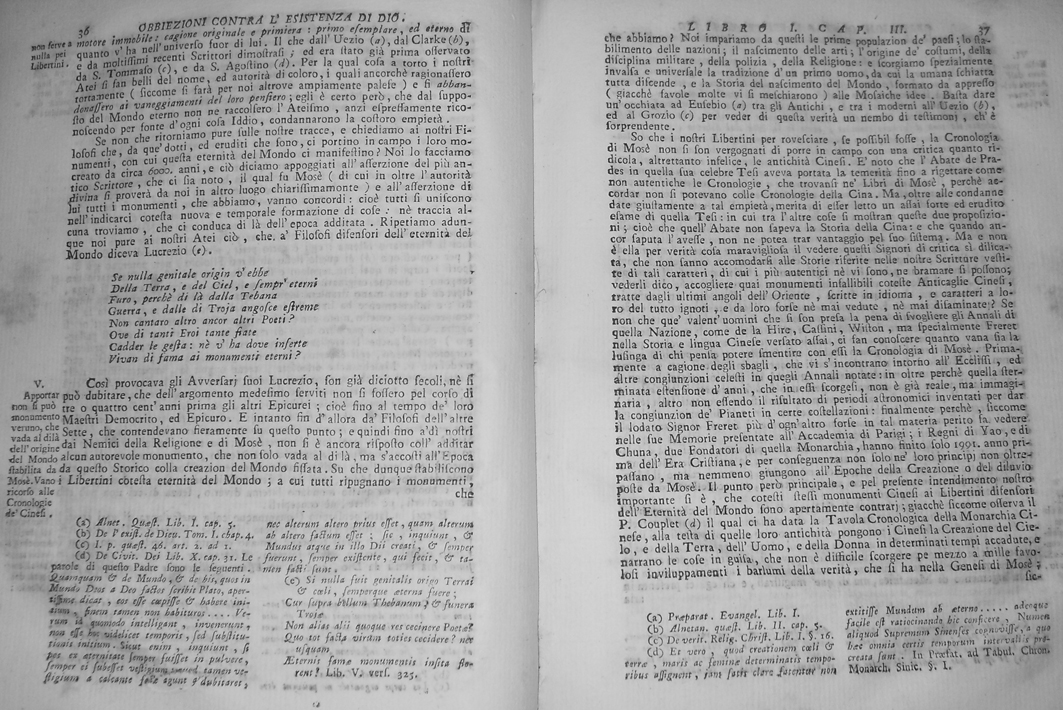 36 OBBIEZIONI CONTRA L' ESISTENZA DI DIO.
non serve a
nulla pei
Libertini.
motore immobile: cagione originale e primiera: primo esemplare, ed eterno di
quanto v' ha nell' universo fuor di lui. Il che dall' Uezio (a), dal Clarke (b),
e da moltissimi recenti Scrittori dimostrasi; ed era stato già prima osservato
da S. Tommaso (c), e da S. Agostino (d). Per la qual cosa a torto i nostri
Atei si fan belli del nome, ed autorità di coloro, i quali ancorchè ragionassero
tortamente (siccome si farà per noi altrove ampiamente palese) e si abban-
donassero ai vaneggiamenti del loro pensiero; egli è certo però, che dal suppo-
sto del Mondo eterno non ne raccolsero l' Ateismo, anzi espressamente rico-
noscendo per fonte d' ogni cosa Iddio, condannarono la costoro empietà.
Se non che ritorniamo pure sulle nostre tracce, e chiediamo ai nostri Fi-
losofi che, da que' dotti, ed eruditi che sono, ci portino in campo i loro mo-
numenti, con cui questa eternità del Mondo ci manifestino? Noi lo facciamo
creato da circa 6000. anni, e ciò diciamo appoggiati all' asserzione del più an-
tico Scrittore, che ci sia noto, il qual fu Mosè (di cui in oltre l' autorità
divina si proverà da noi in altro luogo chiarissimamente) e all' asserzione di
lui tutti i monumenti, che abbiamo, vanno concordi: cioè tutti si uniscono
nell' indicarci cotesta nuova e temporale formazione di cose: nè traccia al-
cuna troviamo, che ci conduca di là dell' epoca additata. Ripetiamo adun-
que noi pure ai nostri Atei ciò, che a' Filosofi difensori dell' eternità del
Mondo diceva Lucrezio (e).
Se nulla genitale origin v' ebbe
Della Terra, e del Ciel, e sempr' eterni
Furo, perchè di là dalla Tebana
Guerra, e dalle di Troja angosce estreme
Non cantaro altro ancor altri Poeti?
Ove di tanti Eroi tante fiate
Cadder le gesta: nè v' ha dove inserte
Vivan di fama ai monumenti eterni?
V.
Apportar
non si può
monumento
veruno, che
vada al dilà
dell' origine
del Mondo
stabilita da
Mosè. Vano
ricorso alle
Cronologie
de' Cinesi.
Così provocava gli Avversarj suoi Lucrezio, son già diciotto secoli, nè si
può dubitare, che dell' argomento medesimo serviti non si fossero pel corso di
tre o quattro cent' anni prima gli altri Epicurei; cioè fino al tempo de' loro
Maestri Democrito, ed Epicuro. E intanto fin d' allora da' Filosofi dell' altre
Sette, che contendevano fieramente su questo punto; e quindi fino a' dì nostri
dai Nemici della Religione e di Mosè, non si è ancora risposto coll' additar
alcun autorevole monumento, che non solo vada al di là, ma s' accosti all' Epoca
da questo Storico colla creazion del Mondo fissata. Su che dunque stabiliscono
i Libertini cotesta eternità del Mondo; a cui tutti ripugnano i monumenti,
che
(a) Alnet. Quæst. Lib. I. cap. 5.
(b) De l' exist. de Dieu. Tom. I. chap. 4.
(c) I. p. quæst. 46. art. 2. ad 1.
(d) De Civit. Dei Lib. X. cap. 31. Le
parole di questo Padre sono le seguenti.
Quamquam & de Mundo, & de his, quos in
Mundo Deos a Deo factos scribit Plato, aper-
tissime dicat, eos esse cœpisse & habere ini-
tium, finem tamen non habituros.... Ve-
rum id quomodo intelligant, invenerunt,
non esse hoc videlicet temporis, sed substitu-
tionis initium. Sicut enim, inquiunt, si
pes ex æternitate semper fuisset in pulvere,
semper ei subesset vestigium, quod tamen ve-
stigium a calcante factum nemo dubitaret,
nec alterum altero prius esset, quam alterum
ab altero factum esset; sic, inquiunt, &
Mundus atque in illo Dii creati, & semper
fuerunt, semper existente, qui fecit, & ta-
men facti sunt.
(e) Si nulla fuit genitalis origo Terrai
& cœli, semperque æterna fuere;
Cur supra bellum Thebanum, & funera
Trojæ
Non alias alii quoque res cecinere Poetæ?
Quo tot facta virûm toties cecidere? nec
usquam
Æternis famæ monumentis insita flo-
rent? Lib. V. vers. 325.
LIBRO I. CAP. III. 37
che abbiamo? Noi impariamo da questi le prime popolazion de' paesi; lo sta-
bilimento delle nazioni; il nascimento delle arti; l' origine de' costumi, della
disciplina militare, della polizia, della Religione: e iscorgiamo spezialmente
invalsa e universale la tradizione d' un primo uomo, da cui la umana schiatta
tutta discende, e la Storia del nascimento del Mondo, formato da appresso
(giacchè favole molte vi si meschiarono) alle Mosaiche idee. Basta dare
un' occhiata ad Eusebio (a) tra gli Antichi, e tra i moderni all' Uezio (b),
ed al Grozio (c) per veder di questa verità un nembo di testimonj, ch' è
sorprendente.
So che i nostri Libertini per rovesciare, se possibil fosse, la Cronologia
di Mosè non si son vergognati di porte in campo con una critica quanto ri-
dicola, altrettanto infelice, le antichità Cinesi. E' noto che l' Abate de Pra-
des in quella sua celebre Tesi aveva portata la temerità fino a rigettare come
non autentiche le Cronologie, che trovansi ne' Libri di Mosè, perchè ac-
cordar non si potevano colle Cronologie della Cina. Ma, oltre alle condanne
date giustamente a tal empietà, merita di esser letto un assai forte ed erudito
esame di quella Tesi: in cui tra l' altre cose si mostran queste due proposizio-
ni; cioè che quell' Abate non sapeva la Storia della Cina: e che quando an-
cor saputa l' avesse, non ne potea trar vantaggio pel suo sistema. Ma e non
è ella per verità cosa maravigliosa il vedere questi Signori di critica sì dilica-
ta, che non sanno accomodarsi alle Storie riferite nelle nostre Scritture vesti-
te di tali caratteri, di cui i più autentici nè vi sono, ne bramare si possono;
vederli dico, accogliere quai monumenti infallibili coteste Anticaglie Cinesi,
tratte dagli ultimi angoli dell' Oriente, scritte in idioma, e caratteri a lo-
ro del tutto ignoti, e da loro forse nè mai vedute, nè mai disaminate? Se
non che que' valent' uomini che si son presa la pena di svogliere gli Annali di
quella Nazione, come de la Hire, Cassini, Wilton, ma specialmente Freret
nella Storia e lingua Cinese versato assai, ci fan conoscere quanto vana sia la
lusinga di chi pensa potere smentire con essi la Cronologia di Mosè. Prima-
mente a cagione degli sbagli, che vi s' incontrano intorno all' Ecclissi, ed
altre congiunzion celesti in quegli Annali notate: in oltre perchè quella ster-
minata estensione d' anni, che in essi scorgesi, non è già reale, ma immagi-
naria, altro non essendo il risultato di periodi astronomici inventati per dar
la congiunzion de' Pianeti in certe costellazioni: finalmente perchè, siccome
il lodato Signor Freret più d' ogn' altro forse in tal materia perito fa vedere
nelle sue Memorie presentate all' Accademia di Parigi; i Regni di Yao, e di
Chuna, due Fondatori di quella Monarchia, hanno solo 1991. anno pri-
ma dell' Era Cristiana, e per conseguenza non solo ne' loro principj non oltre-
passano, ma nemmeno giungono all' Epoche della Creazione o del diluvio
poste da Mosè. Il punto però principale, e pel presente intendimento nostro
importante si è, che cotesti stessi monumenti Cinesi ai Libertini difensori
dell' Eternità del Mondo sono apertamente contrarj; giacchè siccome osserva il
P. Couplet (d) il qual ci ha data la Tavola Cronologica della Monarchia Ci-
nese, alla testa di quelle loro antichità pongono i Cinesi la Creazione del Cie-
lo, e della Terra, dell' Uomo, e della Donna in determinati tempi accadute, e
narrano le cose in guisa, che non è difficile scorgere pe mezzo a mille favo-
losi inviluppamenti i barlumi della verità, che si ha nella Genesi di Mosè;
sic-
(a) Præparat. Evangel. Lib. I.
(b) Alnetan. quæst. Lib. II. cap. 5.
(c) De verit. Relig. Christ. Lib. I. §. 16.
(d) Et vero, quod creationem cœli &
terræ, maris ac feminæ determinatis tempo-
ribus assignent, jam satis clare fatentur non
extitisse Mundum ab æterno..... adeoque
facile est ratiocinando hic conficere, Numen
aliquod Supremum Sinenses cognovisse, a quo
hæc omnia certis temporum intervallis pro-
creata sunt. In Præfat. ad Tabul. Chron.
Monarch. Sinic. §. I.